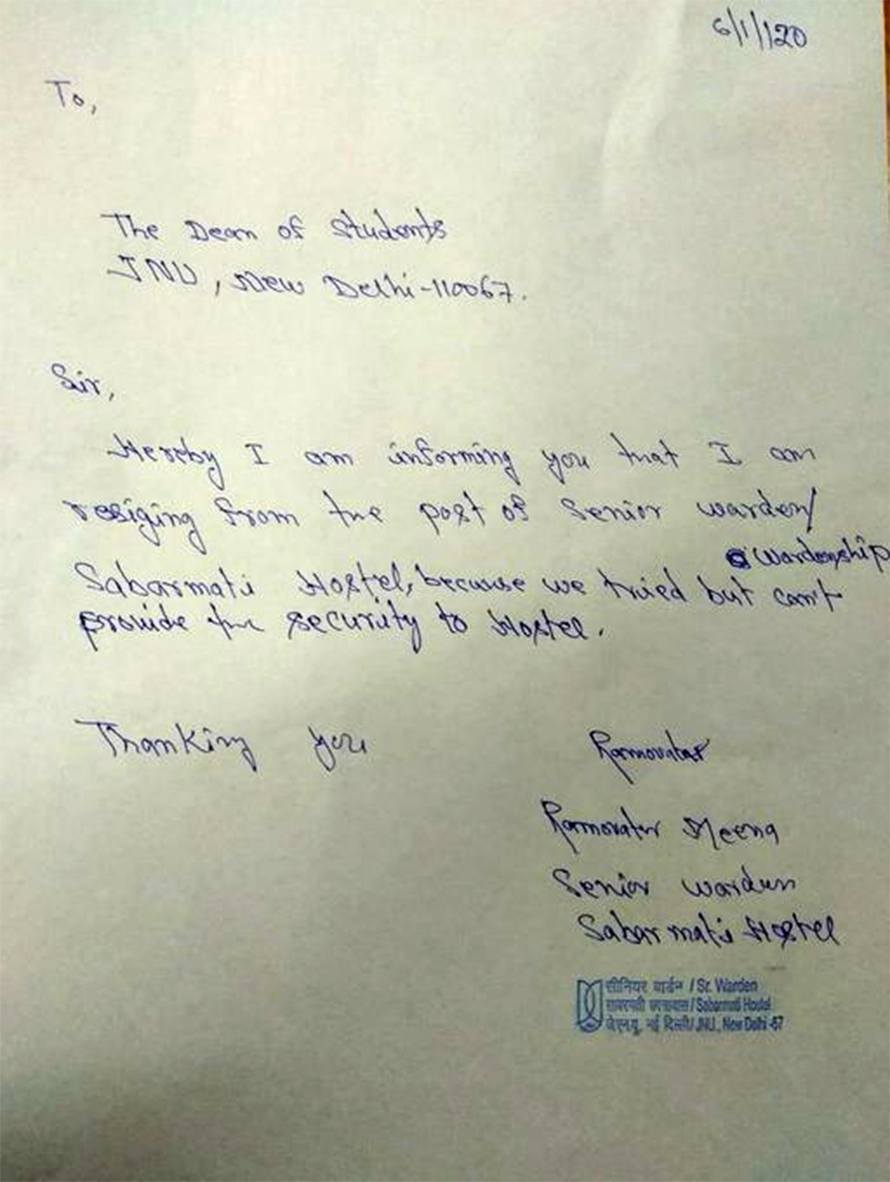 6/1/120
To,
The Dean of Students
JNU, New Delhi-110067.
Sir,
Hereby I am informing you that I am
resiging from the post of Senior warden/
wardenship
Sabarmati Hostel, because we tried but can't
provide the security to Hostel.
Thanking you
Ramovatar
Ramovatar Meena
Senior warden
Sabarmati Hostel
सीनियर वार्डन / Sr. Warden
साबरमती छात्रावास / Sabarmati Hostel
जे.एन.यू., नई दिल्ली / JNU., New Delhi -67